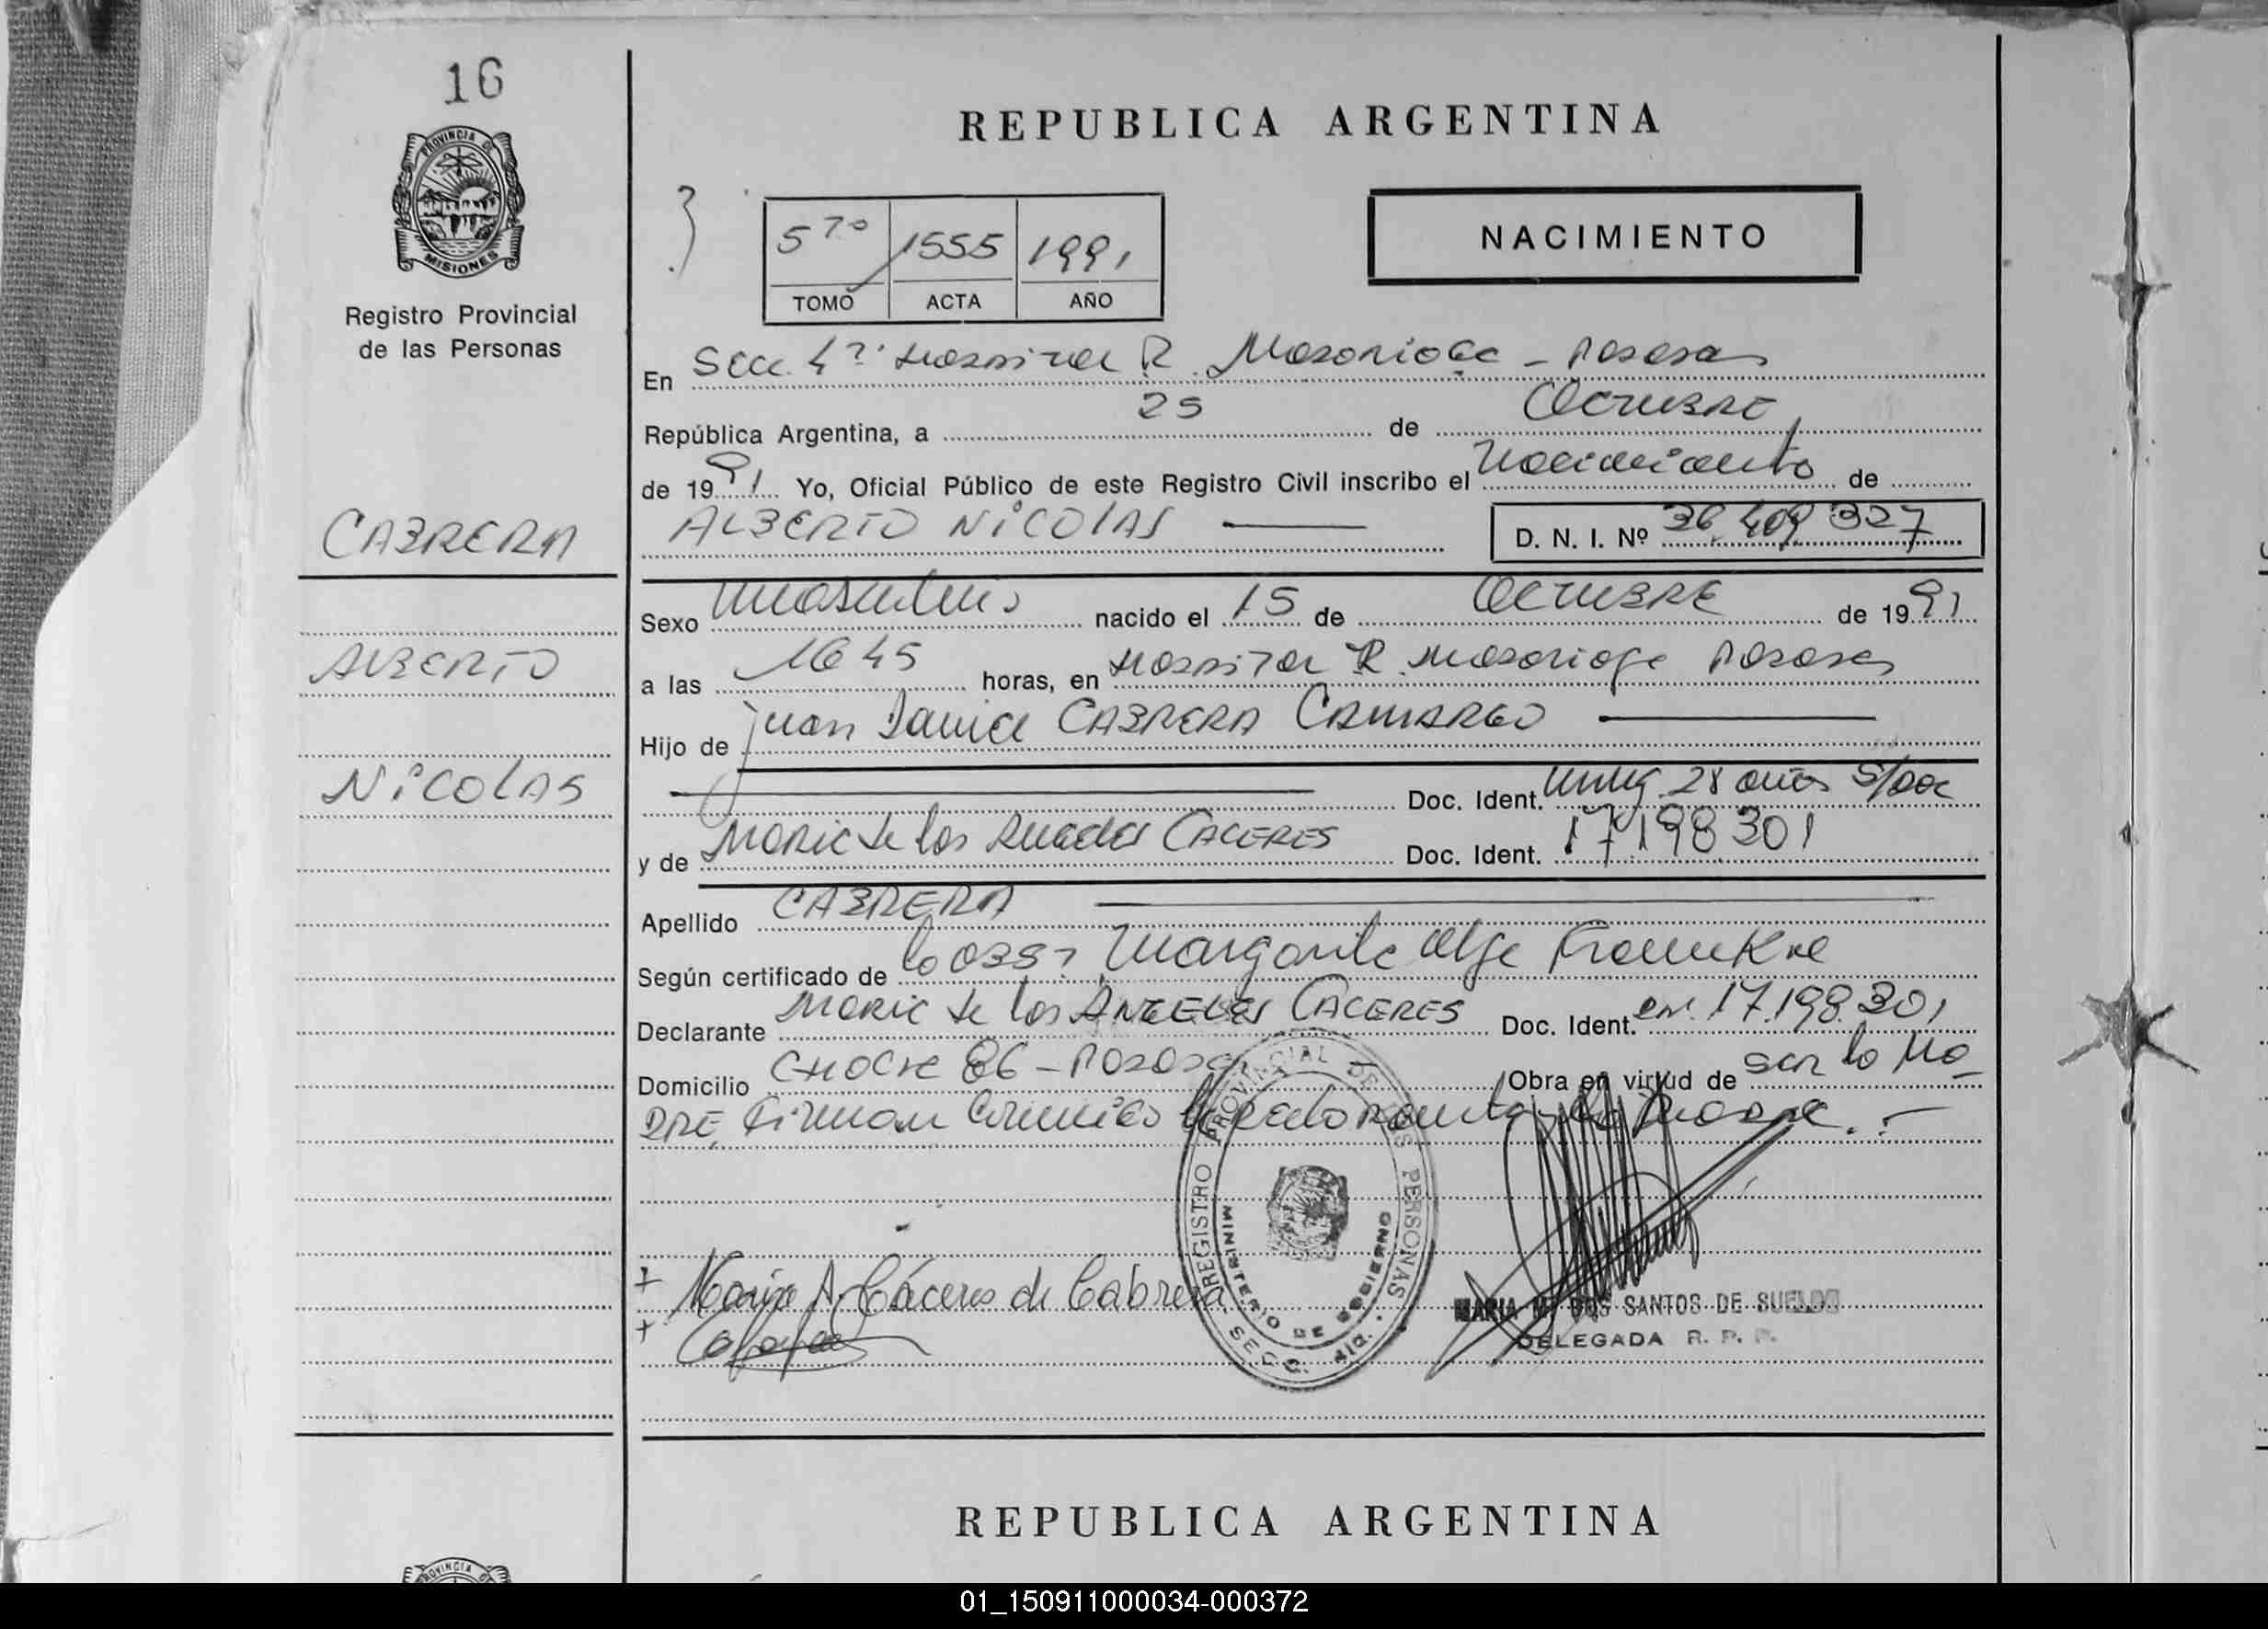 16
PROVINCIA DE
MISIONES
Registro Provincial
de las Personas
REPUBLICA ARGENTINA
5 7º 1555 1991
TOMO ACTA AÑO
NACIMIENTO
En Secc. 4ª Hospital R. Madariaga - Posadas
República Argentina, a 25 de Octubre
de 1991 Yo, Oficial Público de este Registro Civil inscribo el Nacimiento de
CABRERA
ALBERTO NICOLAS
D. N. I. Nº 36.409.327
Sexo masculino nacido el 15 de Octubre de 1991
ALBERTO
a las 16 45 horas, en Hospital R. Madariaga Posadas
Hijo de Juan Daniel CABRERA CAMARGO
NICOLAS
Doc. Ident. 28 años S/Doc
y de Maria de los Angeles CACERES Doc. Ident. 17.198.301
Apellido CABRERA
Según certificado de la Obst. Margarita
Declarante Maria de los ANGELES CACERES Doc. Ident. 17.198.301
Domicilio 86 - Posadas Obra en virtud de ser la Ma-
dre. Firman conmigo la declarante y el Padre.
REGISTRO PROVINCIAL DE LAS PERSONAS
MINISTERIO DE GOBIERNO
SECC.
+ Maria A. Cáceres de Cabrera
+
MARIA M. DOS SANTOS DE SUELDO
DELEGADA R. P. P.
REPUBLICA ARGENTINA
PROVINCIA DE
01_150911000034-000372